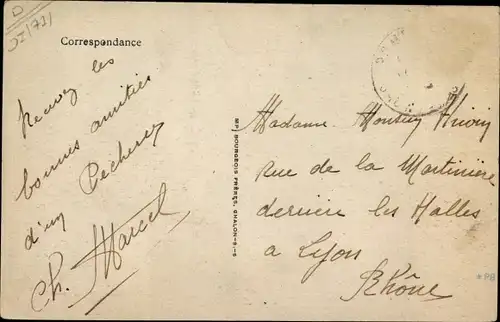 D
Correspondance
Recevez les
bonnes amitiés
d'un Pêcheur
Ch. Marcel
IMP. BOURGEOIS FRÈRES, CHALON-S-S
Madame
rue de la Martinière
derrière les Halles
à Lyon
Rhône